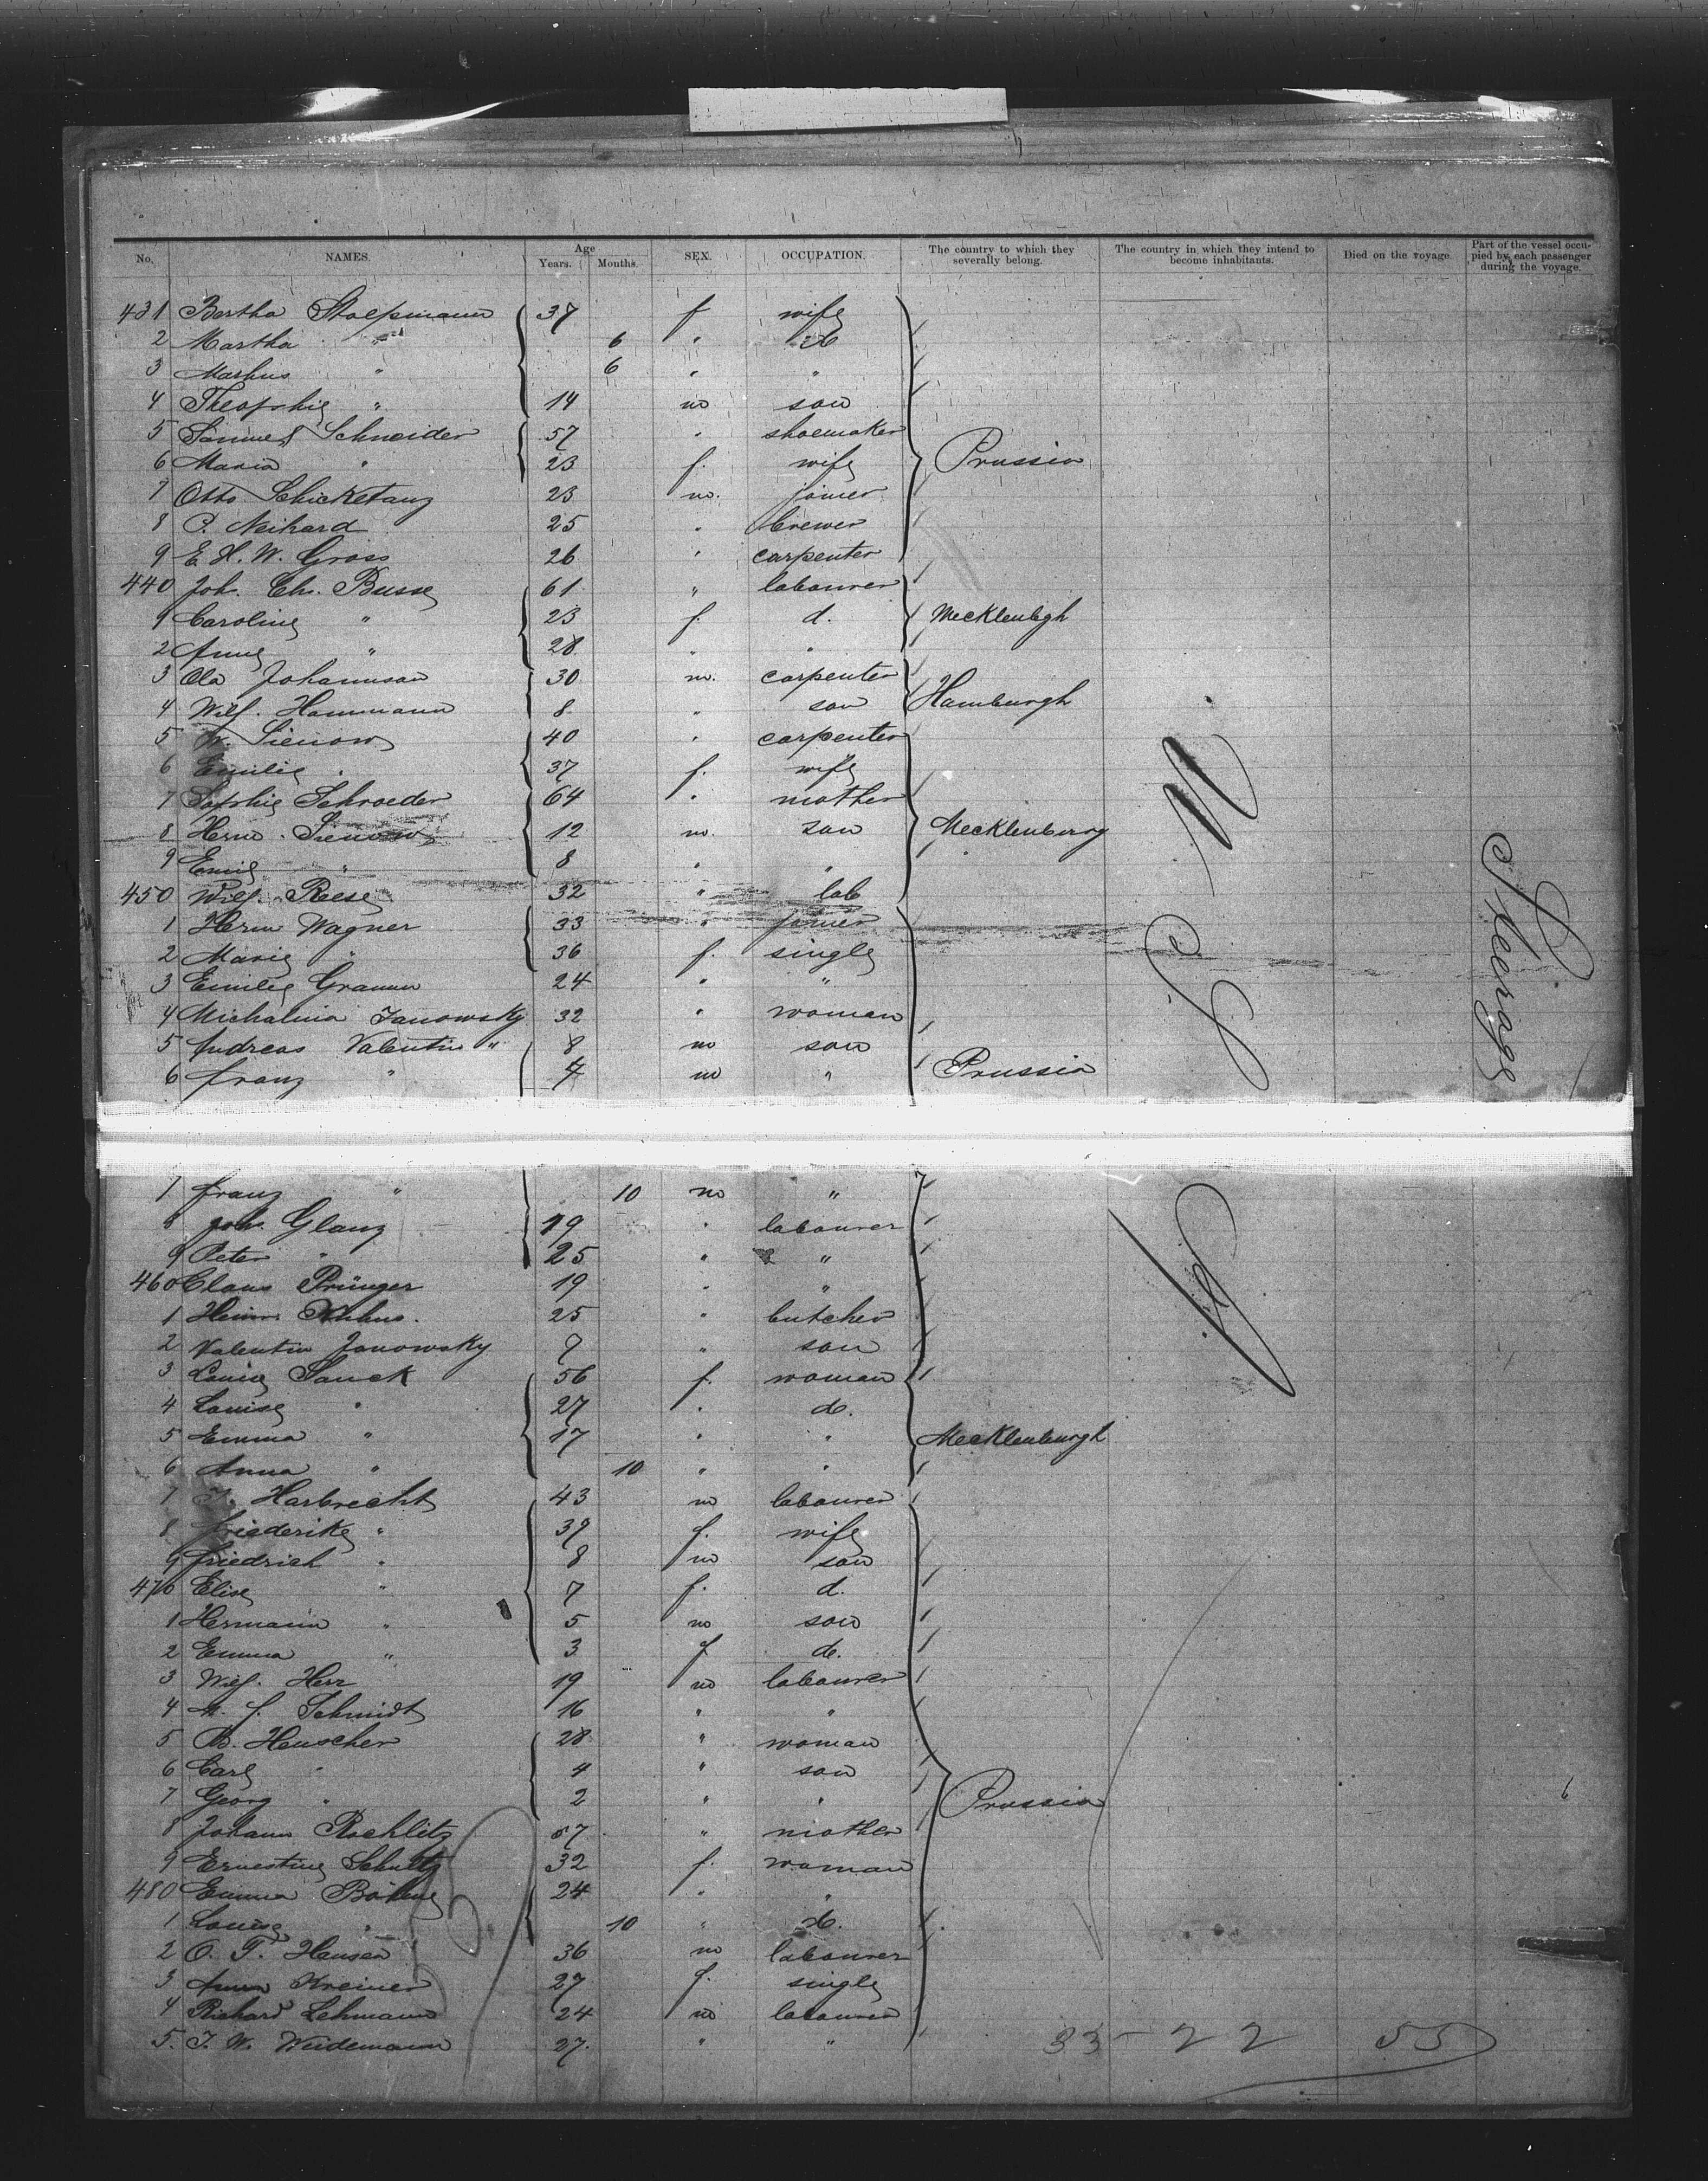 No. NAMES. Age Years. Months. SEX. OCCUPATION. The country to which they severally belong. The country in which they intend to become inhabitants. Died on the voyage. Part of the vessel occupied by each passenger during the voyage.
431 Bertha Stolpmann 37 f wife
2 Martha " 6 " d
3 Markus " 6 " "
4 Theophie " 14 m son
5 Samuel Schneider 57 " shoemaker
6 Maria " 23 f. wife Prussia
7 Otto Schicketanz 23 m. joiner
8 C. Neihard 25 " brewer
9 E. H. W. Gross 26 " carpenter
440 Joh. Chr. Busse 61 " labourer
1 Caroline " 23 f. d. Mecklenbgh
2 Anne " 28 " "
3 Ola Johannson 30 m. carpenter
4 Wilh. Hammann 8 " son Hamburgh
5 W. Sienow 40 " carpenter
6 Emilie " 37 f. wife
7 Sophie Schroeder 64 " mother
8 Herm. Sienow 12 m. son Mecklenburg
9 Emil " 8 " "
450 Wilh. Reese 32 " lab
1 Herm Wagner 33 " joiner
2 Marie " 36 f. single
3 Emilie Gramm 24 " "
4 Michalina Janowsky 32 " woman
5 Andreas Valentin " 8 m son
6 Franz " 4 m " Prussia
U. S. of
Steerage
7 Franz " 10 m "
8 Joh. Glanz 19 " labourer
9 Peter " 25 " "
460 Claus Prünger 19 " "
1 Heinr. Kuhns. 25 " butcher
2 Valentin Janowsky 9 " son
3 Louise Sauck 56 f. woman
4 Louise " 27 " d.
5 Emma " 17 " " Mecklenburgh
6 Anna " 10 " "
7 J. Harbrecht 43 m labourer
8 Friederike " 39 f. wife
9 Friedrich " 8 m son
470 Elise " 7 f. d.
1 Hermann " 5 m son
2 Emma " 3 f d.
3 Wilh. Herr 19 m labourer
4 M. J. Schmidt 16 " "
5 B. Heuscher 28 " woman
6 Carl " 4 " son
7 Georg " 2 " " Prussia
8 Johann Rochlitz 57 " mother
9 Ernestine Schultz 32 f. woman
480 Emma Böhme 24 " "
1 Louise " 10 " d.
2 O. T. Hansen 36 m labourer
3 Anna Kreiner 27 f. single
4 Richard Lehmann 24 m labourer
5. J. W. Weidemann 27. " "
33 - 22 55